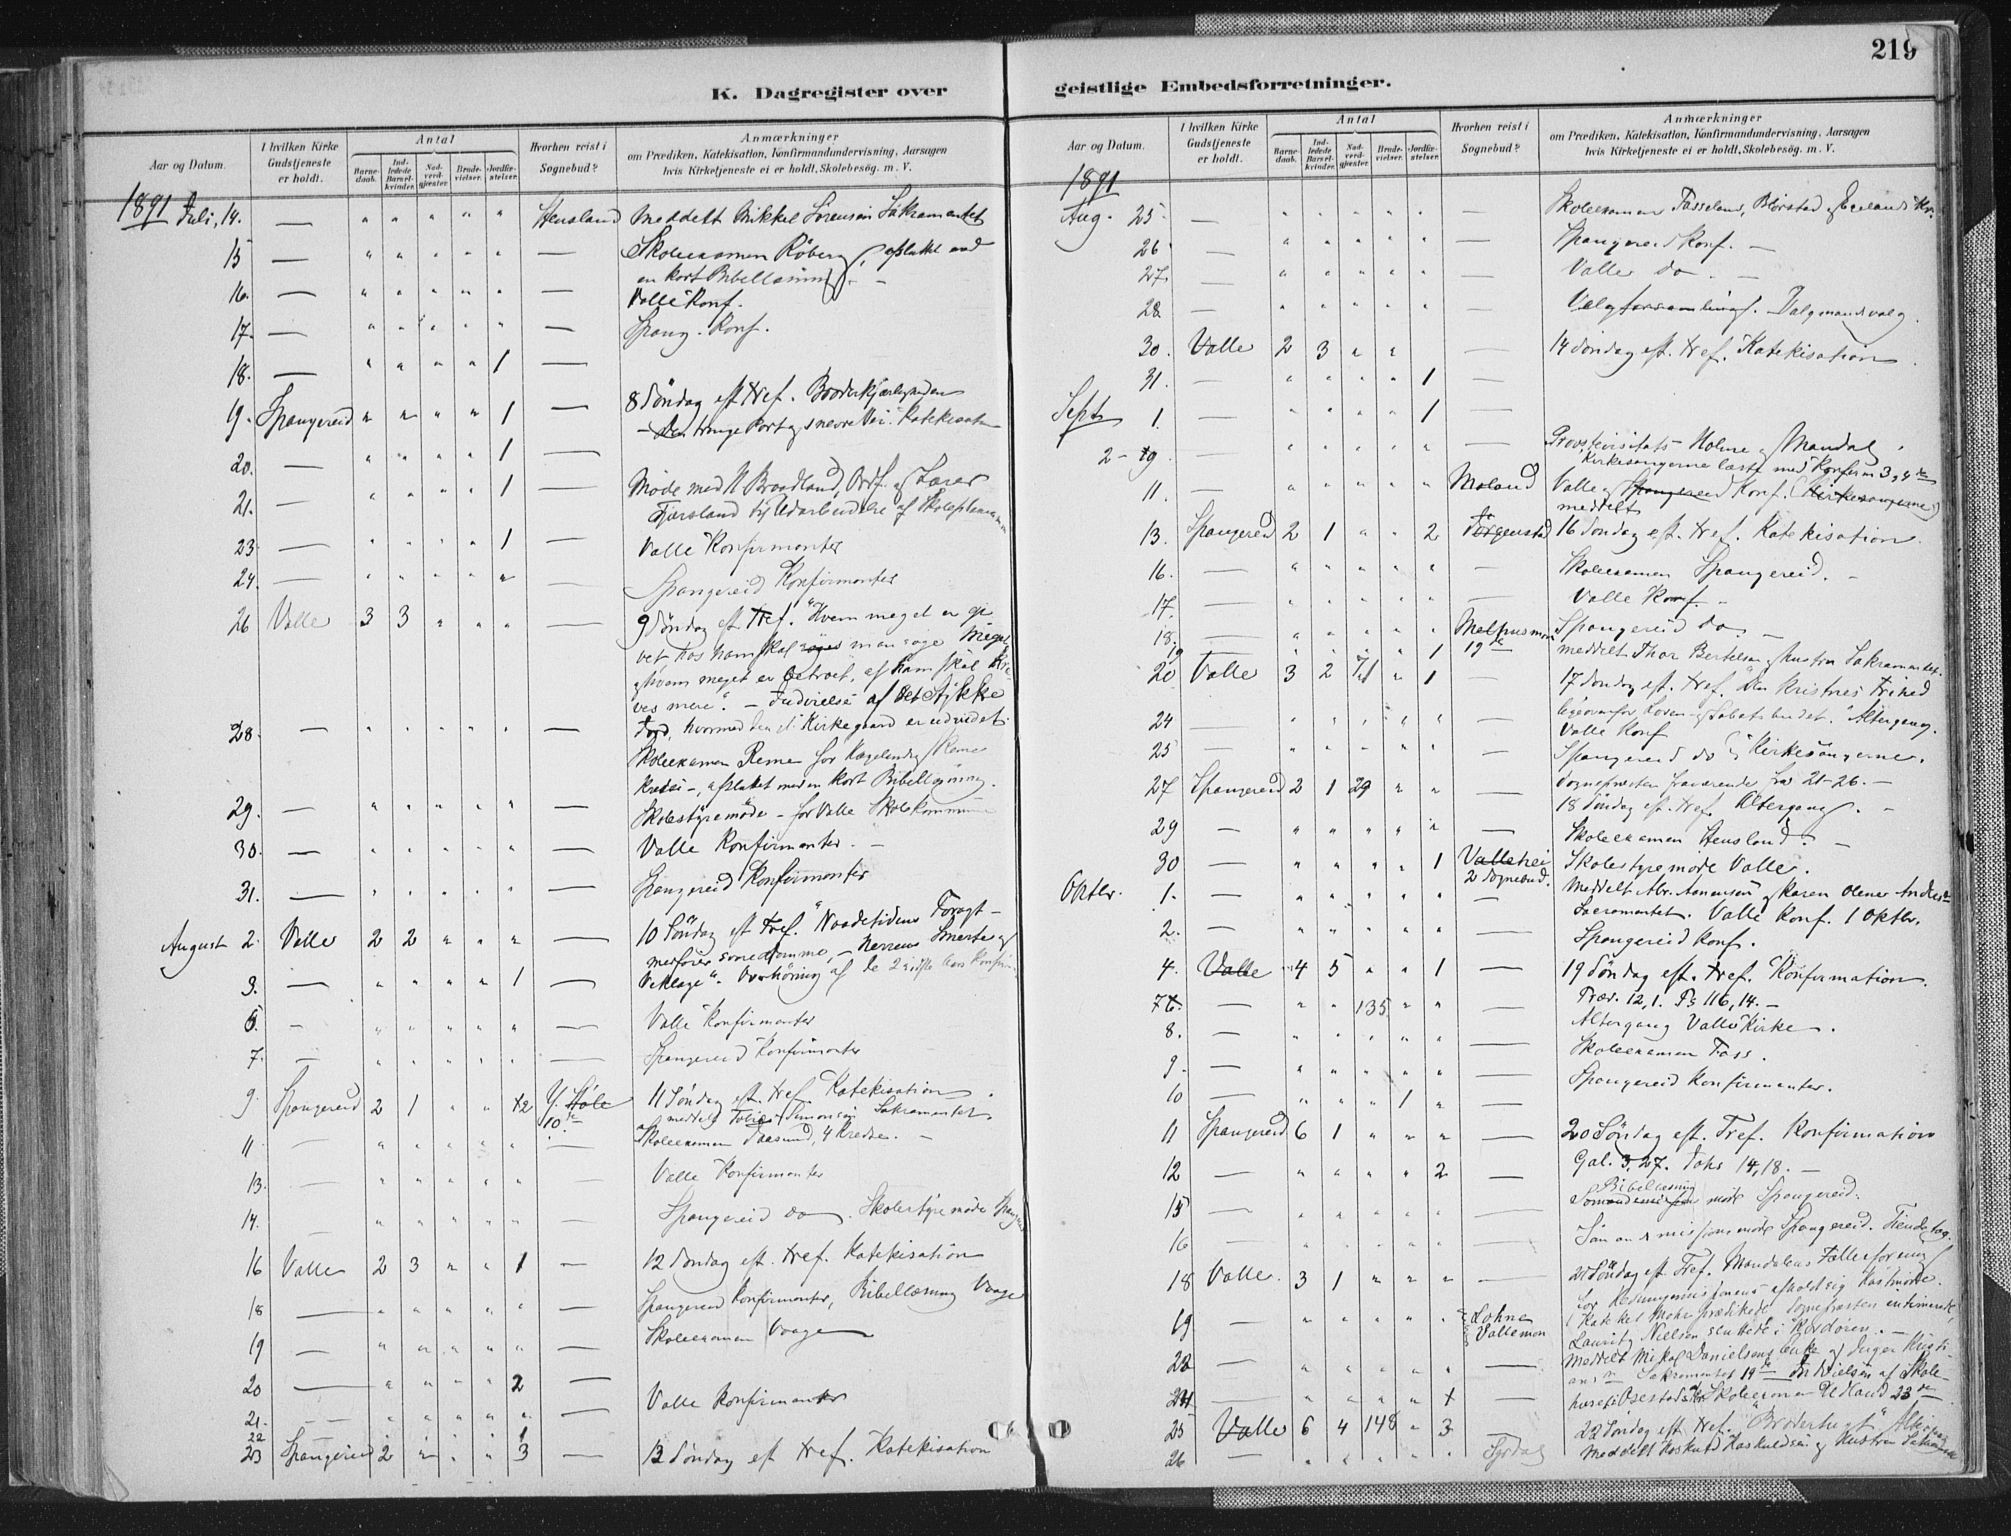 219
K. Dagregister over
geistlige Embedsforretninger.
Aar og Datum.
I hvilken Kirke Gudstjeneste er holdt.
Antal
Barnedaab.
Indledede Barselkvinder.
Nadverdgjæster.
Brudevielser.
Jordfæstelser.
Hvorhen reist i Sognebud?
Anmærkninger
om Prædiken, Katekisation, Konfirmandundervisning, Aarsagen
hvis Kirketjeneste ei er holdt, Skolebesøg. m. V.
1891 Juli, 14. — " " " " " Hensland Meddelt Mikkel Sørensen Sakramentet
15 — " " " " " — Skoleexamen Röberg, afsluttet med
en kort Bibellæsning. —
16. — " " " " " — Valle Konf.
17. — " " " " " — Spang. Konf.
18. — " " " " 1 —
19. Spangereid " " " " 1 — 8 Söndag eft Tref. Broderkjærligheden
— Den trange Port og snevre Vei. Katekisation
20. — " " " " 1
21. — " " " " 1 — Møde med N Braadland, Ordf. og Lærer
Fjærsland til Udarbeidelse af Skoleplanen
23. — " " " " 1 — Valle Konfirmanter
24. — " " " " " — Spangereid Konfirmanter
26 Valle 3 3 " " " — 9 Söndag eft Tref. "Hvem meget er gi-
vet, hos ham skal man søge meget
og hvem meget er betroet, af ham skal kræ-
ves mere." — Indvielse af det Stykke
Jord, hvormed den Kirkegaard er udvidet.
28. — " " " " " — Skoleexamen Reme for Hægeland og Reme
Kredse —, afsluttet med en kort Bibellæsning.
29. — " " " " " — Skolestyremøde — for Valle Skolekommune
30. — " " " " " — Valle Konfirmanter. —
31. — " " " " " — Spangereid Konfirmanter
August 2. Valle 2 2 " " " — 10 Söndag eft Tref. "Naadetidens Foragt —
medfører sine Domme, — Herrens Smerte og
Veklage". Overhöring af de 2 sidste Aars Konfirm.
3. — " " " " 1 —
6. — " " " " " — Valle Konfirmanter
7. — " " " " " — Spangereid Konfirmanter
9. Spangereid 2 1 " " 2 Y. Støle 11 Söndag eft. Tref. Katekisation.
10de meddelt Tobias Simonsen Sakramentet.
11 — " " " " " Skoleexamen Taasund, 4 Kredse. —
13. — " " " " " Valle Konfirmanter
14. — " " " " " — Spangereid do. Skolestyremøde Spang
16 Valle 2 3 " " 1 — 12 Söndag eft. Tref. Katekisation
18 — " " " " " — Spangereid Konfirmanter, Bibellæsning Vaage
19 — " " " " " — Skoleexamen Vaage
20 — " " " " 2 —
21. — " " " " " — Valle Konfirmanter
22 " " " " 1
23 Spangereid 2 " " " 3 — 13 Söndag eft Tref. Katekisation
Aar og Datum.
I hvilken Kirke Gudstjeneste er holdt.
Antal
Barnedaab.
Indledede Barselkvinder.
Nadverdgjæster.
Brudevielser.
Jordfæstelser.
Hvorhen reist i Sognebud?
Anmærkninger
om Prædiken, Katekisation, Konfirmandundervisning, Aarsagen
hvis Kirketjeneste ei er holdt, Skolebesøg. m. V.
1891
Aug. 25 — " " " " " — Skoleexamen Fasseland, Blørstad og Egelands Kr.
26 — " " " " " — Spangereid Konf. —
27. — " " " " " — Valle do. —
28 — " " " " " — Valgforsamling. Valgmandsvalg.
30. Valle 2 3 " " — 14 Söndag eft. Tref. Katekisation.
31. — " " " " 1 —
Sept 1. — " " " " 1 —
2 – 9 — " " " " " — Provstevisitats Holme og Mandal.
Kirkesangerne læste med Konfirm 3 og 4de
11. — " " " " " Moland Valle og Spangereid Konf. (Kirkesangerne)
meddelt
13. Spangereid 2 1 " " 2 Jørgenstad 16 Söndag eft. Tref. Katekisation.
16. — " " " " " — Skoleexamen Spangereid. —
17. — " " " " " Valle Konf. —
18. — " " " " " Melhusmon Spangereid do. —
19 " " " " 1 19de meddelt Thor Bertelsen og hustru Sakramentet.
20 Valle 3 2 71 " 1 — 17 Söndag eft. Tref. Den Kristnes Frihed
ligeoverfor Loven og Sabatsbudet. Altergang.
24 — " " " " " — Valle Konf
25 — " " " " " — Spangereid do Kirkesangerne.
Sognepresten fraværende fra 21–26. —
27 Spangereid 2 1 29 " " — 18 Söndag eft. Tref. Altergang. —
29 — " " " " " — Skoleexamen Hensland. —
30 — " " " " 1 Vallehei Skolestyremøde Valle.
2 Sognebud.
Oktbr. 1. — " " " " " — Meddelt Abr. Aanensen og Karen Olene Anders
Sacramentet. Valle Konf. 1 Oktbr.
2. — " " " " " — Spangereid Konf.
4. Valle 4 5 " " 1 — 19 Söndag eft. Tref. Konfirmation.
Præd. 12,1. Ps 116,14. —
7 — " " 135 " " — Altergang Valle Kirke.
8. — " " " " " — Skoleexamen Foss.
9. — " " " " " — Spangereid Konfirmanter.
10 — " " " 1 "
11 Spangereid 6 1 " " " — 20 Söndag eft. Tref. Konfirmation
Gal. 3,27. Johs 14,18. —
12 — " " " " 2 —
15 — " " " " " Bibellæsning møde Spangereid.
16 — " " " " " Spangereid. Tiendetag.
18 Valle. 3 1 " " " — 21 Söndag eft Tref. Mandalens Fællesforening
for Hedningemissionens afholdt sig Kastmøde.
Mohr prædikede Sognepresten intimerede,
19. — " " " " " Lohne Vallemon Lauritz Nielsen sluttede i Kordøren. —
Meddelt Mikal Danielsens Enke og Inger Kristi-
22 — " " " " " — ans Sakramentet 19de Indvielsen af Skole-
24 — " " " " 1 — huset i Osestad. Skoleexamen Udland 23de
25 Valle 6 4 148 " 3 — 22 Söndag eft. Tref. Altergang
26 — " " " " " Syrdag Meddelt Haskuld Haskuldsen og Hustru Sakramente